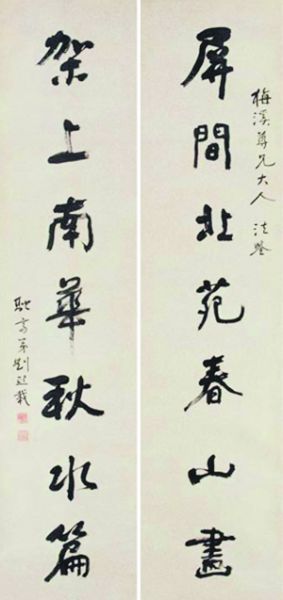 梅溪尊兄大人 法鑒
屏間北苑春山畫
架上南華秋水篇
融齋弟劉熙載